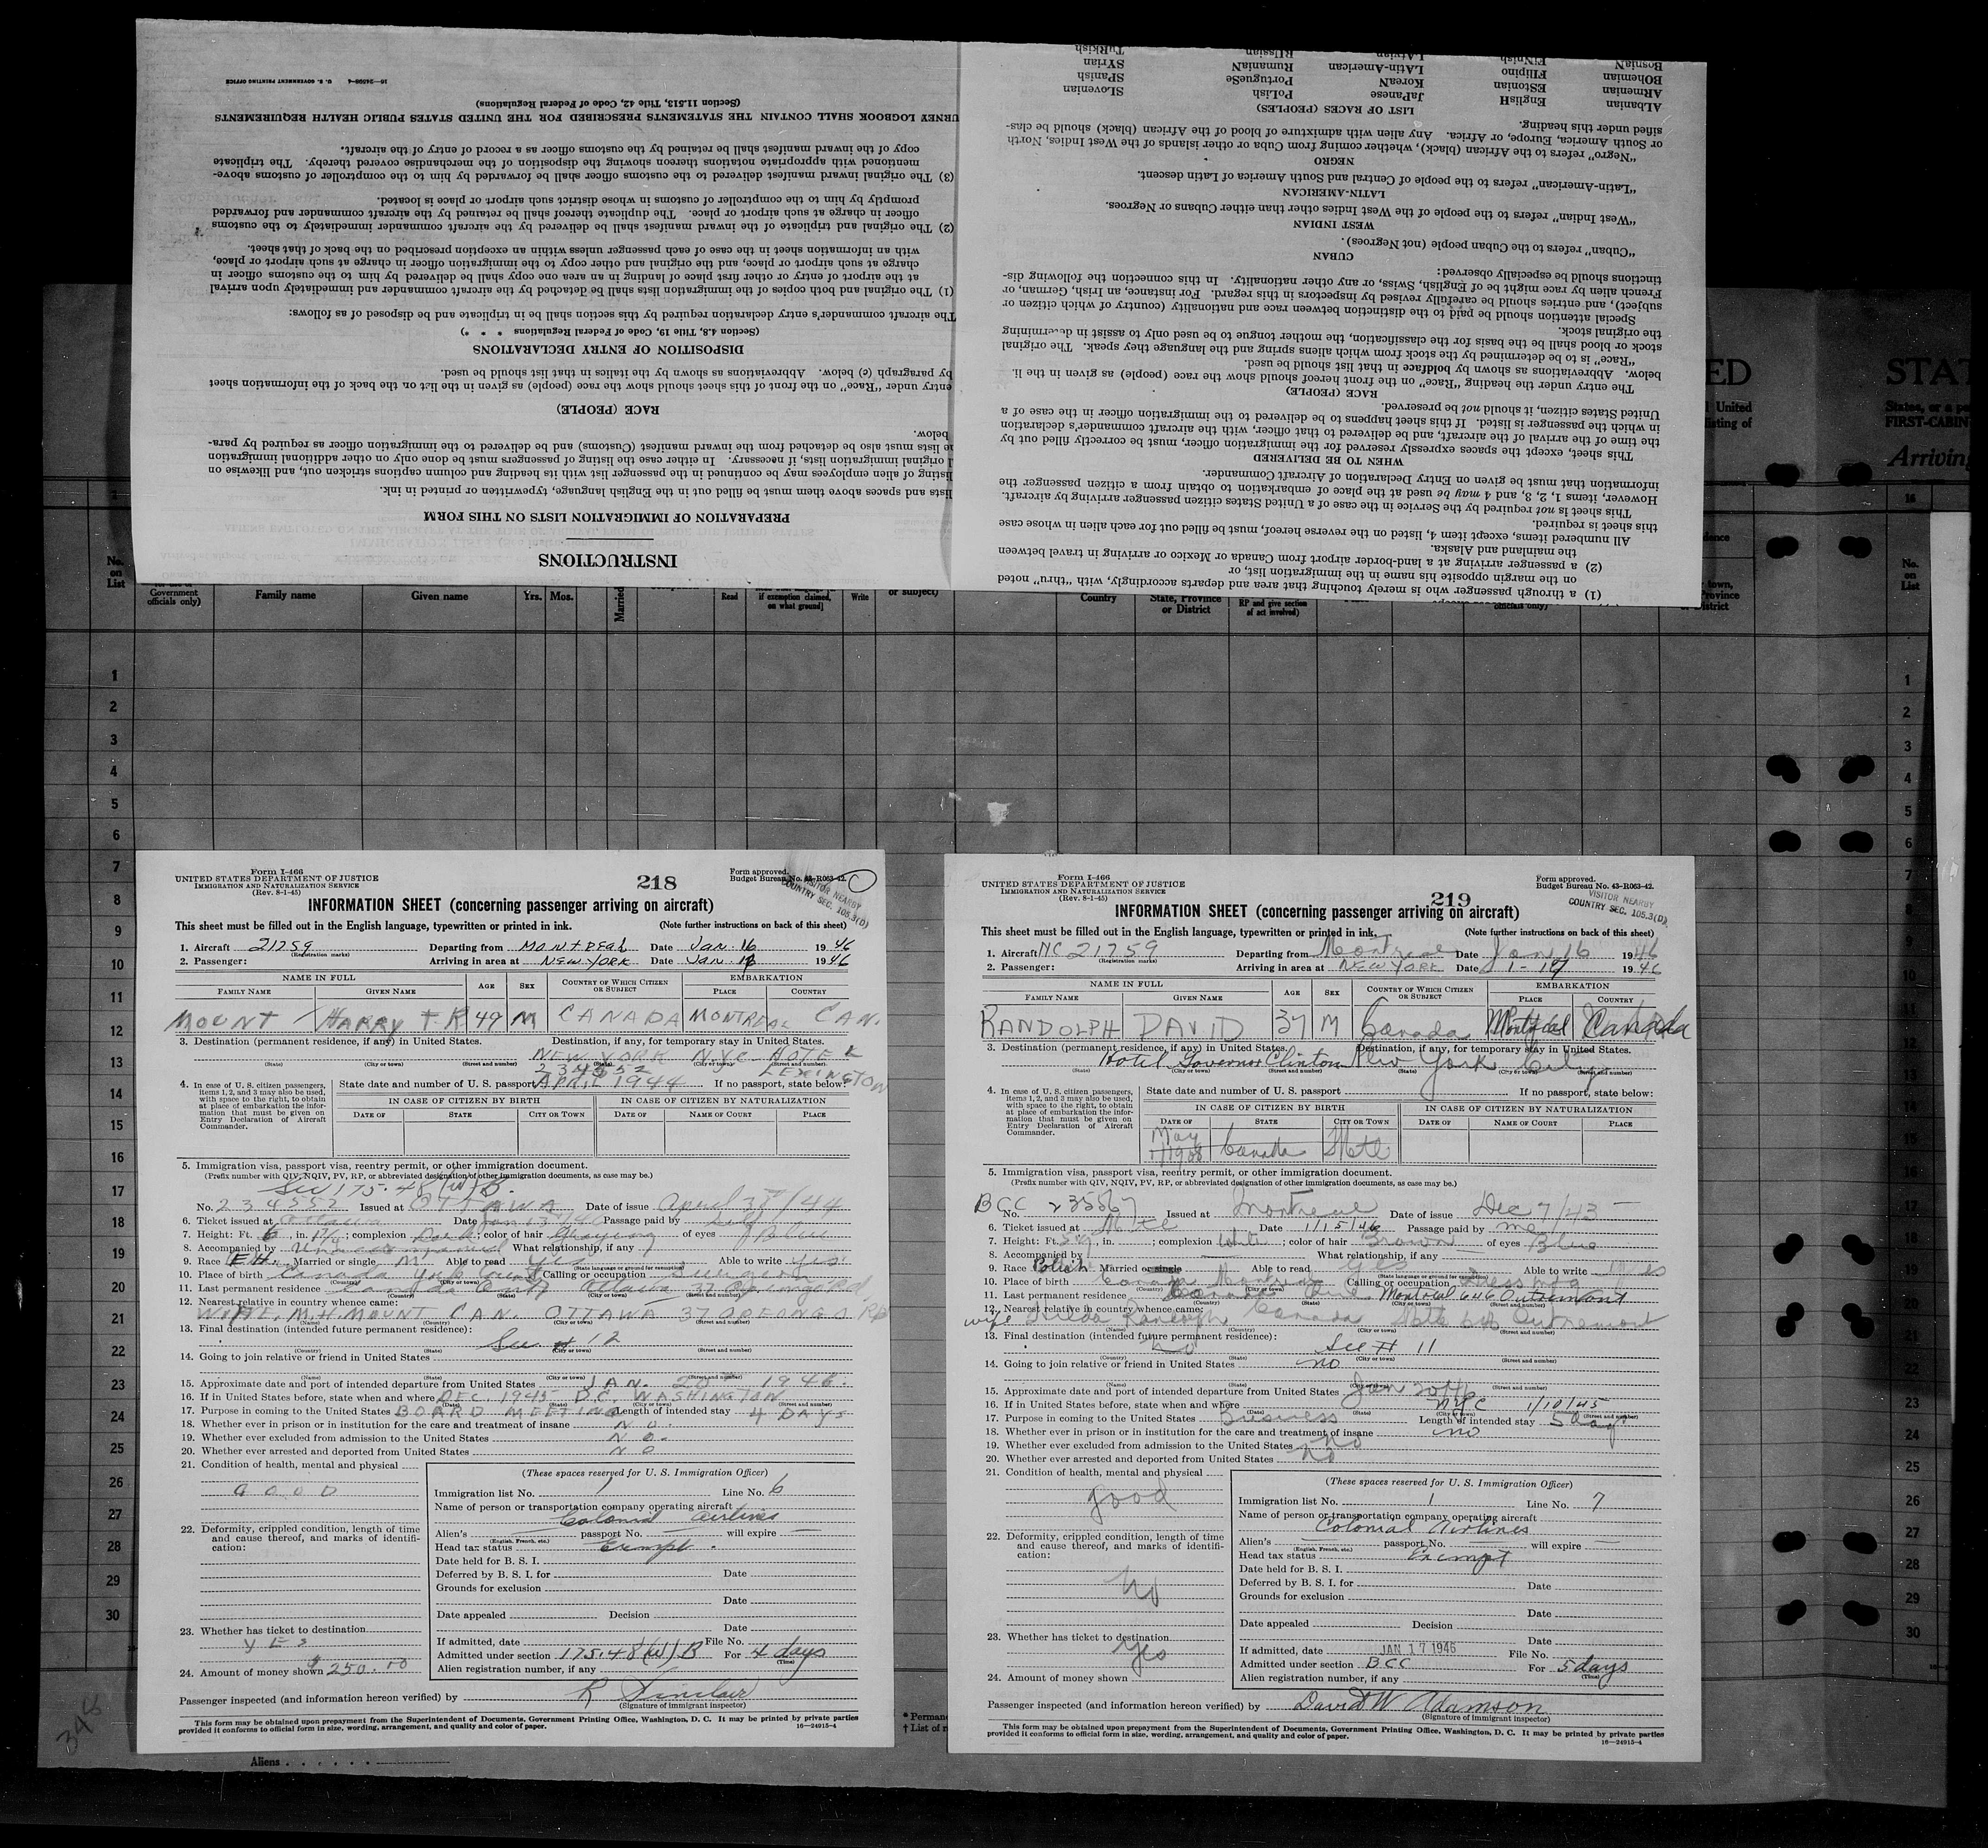 INSTRUCTIONS
PREPARATION OF IMMIGRATION LISTS ON THIS FORM
lists and spaces above them must be filled out in the English language, typewritten or printed in ink.
listing of alien employees may be continued in the passenger list with its heading and column captions stricken out, and likewise on
original immigration lists, if necessary. In either case the listing of passengers must be done only on other additional immigration
lists must also be detached from the inward manifest (Customs) and be delivered to the immigration officer as required by para-
below.
RACE (PEOPLE)
entry under "Race" on the front of this sheet should show the race (people) as given in the list on the back of the information sheet
by paragraph (c) below. Abbreviations as shown by the italics in that list should be used.
DISPOSITION OF ENTRY DECLARATIONS
(Section 4.5, Title 19, Code of Federal Regulations * * *)
The aircraft commander's entry declaration required by this section shall be in triplicate and be disposed of as follows:
(1) The original and both copies of the immigration lists shall be detached by the aircraft commander and immediately upon arrival
at the airport of entry or other first place of landing in an area one copy shall be delivered by him to the customs officer in
charge at such airport or place, and the original and other copy to the immigration officer in charge at such airport or place,
with an information sheet in the case of each passenger unless within an exception prescribed on the back of that sheet.
(2) The original and triplicate of the inward manifest shall be delivered by the aircraft commander immediately to the customs
officer in charge at such airport or place. The duplicate thereof shall be retained by the aircraft commander and forwarded
promptly by him to the comptroller of customs in whose district such airport or place is located.
(3) The original inward manifest delivered to the customs officer shall be forwarded by him to the comptroller of customs above-
mentioned with appropriate notations thereon showing the disposition of the merchandise covered thereby. The triplicate
copy of the inward manifest shall be retained by the customs officer as a record of entry of the aircraft.
URNEY LOGBOOK SHALL CONTAIN THE STATEMENTS PRESCRIBED FOR THE UNITED STATES PUBLIC HEALTH REQUIREMENTS
(Section 11.513, Title 42, Code of Federal Regulations)
U. S. GOVERNMENT PRINTING OFFICE
(1) a through passenger who is merely touching that area and departs accordingly, with "thru" noted
on the margin opposite his name in the immigration list, or
(2) a passenger arriving at a land-border airport from Canada or Mexico or arriving in travel between
the mainland and Alaska.
All numbered items, except item 4, listed on the reverse hereof, must be filled out for each alien in whose case
this sheet is required.
This sheet is not required by the Service in the case of a United States citizen passenger arriving by aircraft.
However, items 1, 2, 3, and 4 may be used at the place of embarkation to obtain from a citizen passenger the
information that must be given on Entry Declaration of Aircraft Commander.
WHEN TO BE DELIVERED
This sheet, except the spaces expressly reserved for the immigration officer, must be correctly filled out by
the time of the arrival of the aircraft, and be delivered to that officer, with the aircraft commander's declaration
in which the passenger is listed. If this sheet happens to be delivered to the immigration officer in the case of a
United States citizen, it should not be preserved.
RACE (PEOPLE)
The entry under the heading "Race" on the front hereof should show the race (people) as given in the li
below. Abbreviations as shown by boldface in that list should be used.
"Race" is to be determined by the stock from which aliens spring and the language they speak. The original
stock or blood shall be the basis for the classification, the mother tongue to be used only to assist in determining
the original stock.
Special attention should be paid to the distinction between race and nationality (country of which citizen or
subject), and entries should be carefully revised by inspectors in this regard. For instance, an Irish, German, or
French alien by race might be of English, Swiss, or any other nationality. In this connection the following dis-
tinctions should be especially observed:
CUBAN
"Cuban" refers to the Cuban people (not Negroes).
WEST INDIAN
"West Indian" refers to the people of the West Indies other than either Cubans or Negroes.
LATIN-AMERICAN
"Latin-American" refers to the people of Central and South America of Latin descent.
NEGRO
"Negro" refers to the African (black), whether coming from Cuba or other islands of the West Indies, North
or South America, Europe, or Africa. Any alien with admixture of blood of the African (black) should be clas-
sified under this heading.
LIST OF RACES (PEOPLES)
ALbanian EnglisH JaPanese PoLish SLovenian
ARmenian EStonian KoreaN PortugueSe SPanish
BOhemian FIlipino LAtin-American RumaniaN SYrian
BosniaN FiNnish LAtvian RUssian TuRkish
ED
STAT
United
listing of
States, or a p
FIRST-CABIN
Arriving
No. on List
Government officials only)
Family name Given name Yrs. Mos. Married Read if exemption claimed, on what ground] Write or subject)
Country State, Province or District RP and give section of act involved) officials only)
town, Province or District
No. on List
1
2
3
4
5
6
7
8
9
10
11
12
13
14
15
16
17
18
19
20
21
22
23
24
25
26
27
28
29
30
Form I-466
UNITED STATES DEPARTMENT OF JUSTICE
IMMIGRATION AND NATURALIZATION SERVICE
(Rev. 8-1-45)
218
Form approved.
Budget Bureau No. 43-R063-42.
VISITOR NEARBY
COUNTRY SEC. 105.3(D)
INFORMATION SHEET (concerning passenger arriving on aircraft)
This sheet must be filled out in the English language, typewritten or printed in ink. (Note further instructions on back of this sheet)
1. Aircraft 21759 Departing from MONTREAL Date Jan. 16 1946
(Registration marks)
2. Passenger: Arriving in area at NEW YORK Date Jan. 1946
NAME IN FULL AGE SEX COUNTRY OF WHICH CITIZEN OR SUBJECT EMBARKATION
FAMILY NAME GIVEN NAME PLACE COUNTRY
MOUNT HARRY T.R 49 M CANADA MONTREAL CAN.
3. Destination (permanent residence, if any) in United States. Destination, if any, for temporary stay in United States.
NEW YORK N.Y.C. HOTEL LEXINGTON
(State) (City or town) (Street and number)
4. In case of U. S. citizen passengers, items 1, 2, and 3 may also be used, with space to the right, to obtain at place of embarkation the information that must be given on Entry Declaration of Aircraft Commander.
State date and number of U. S. passport 234552 APRIL 1944 If no passport, state below:
IN CASE OF CITIZEN BY BIRTH IN CASE OF CITIZEN BY NATURALIZATION
DATE OF STATE CITY OR TOWN DATE OF NAME OF COURT PLACE
5. Immigration visa, passport visa, reentry permit, or other immigration document.
(Prefix number with QIV, NQIV, PV, RP, or abbreviated designation of other immigration documents, as case may be.)
175.48(W)B.
No. 234552 Issued at OTTAWA Date of issue April /44
6. Ticket issued at Ottawa Date Jan 13 Passage paid by Self
7. Height: Ft. 6, in. ; complexion Dark; color of hair Graying of eyes Blue
8. Accompanied by Unaccompanied What relationship, if any
9. Race EH. Married or single M. Able to read Yes Able to write Yes
10. Place of birth Canada York County Calling or occupation Surgeon
11. Last permanent residence Canada Ont Ottawa 37
12. Nearest relative in country whence came:
WIFE, M.H. MOUNT CAN. OTTAWA 37
(Name) (Country) (City or town) (Street and number)
13. Final destination (intended future permanent residence):
See # 12
(Country) (State) (City or town) (Street and number)
14. Going to join relative or friend in United States
15. Approximate date and port of intended departure from United States JAN. 20 1946.
16. If in United States before, state when and where DEC. 1945 D.C. WASHINGTON
17. Purpose in coming to the United States BOARD MEETING Length of intended stay 4 DAYS
18. Whether ever in prison or in institution for the care and treatment of insane NO.
19. Whether ever excluded from admission to the United States NO.
20. Whether ever arrested and deported from United States NO
21. Condition of health, mental and physical
GOOD
22. Deformity, crippled condition, length of time and cause thereof, and marks of identification:
23. Whether has ticket to destination
YES
24. Amount of money shown $250.00
(These spaces reserved for U. S. Immigration Officer)
Immigration list No. 1 Line No. 6
Name of person or transportation company operating aircraft
Colonial Airlines
Alien's passport No. will expire
(English, French, etc.)
Head tax status Exempt.
Date held for B. S. I.
Deferred by B. S. I. for Date
Grounds for exclusion
Date
Date appealed Decision
Date
If admitted, date File No.
Admitted under section 175.48(W)B For 4 days
(Time)
Alien registration number, if any
Passenger inspected (and information hereon verified) by R Sinclair
(Signature of immigrant inspector)
This form may be obtained upon prepayment from the Superintendent of Documents, Government Printing Office, Washington, D. C. It may be printed by private parties
provided it conforms to official form in size, wording, arrangement, and quality and color of paper. 16—24915-4
Form I-466
UNITED STATES DEPARTMENT OF JUSTICE
IMMIGRATION AND NATURALIZATION SERVICE
(Rev. 8-1-45)
219
Form approved.
Budget Bureau No. 43-R063-42.
VISITOR NEARBY
COUNTRY SEC. 105.3(D)
INFORMATION SHEET (concerning passenger arriving on aircraft)
This sheet must be filled out in the English language, typewritten or printed in ink. (Note further instructions on back of this sheet)
1. Aircraft NC 21759 Departing from Montreal Date Jan 16 1946
(Registration marks)
2. Passenger: Arriving in area at NEW YORK Date 1-17 1946
NAME IN FULL AGE SEX COUNTRY OF WHICH CITIZEN OR SUBJECT EMBARKATION
FAMILY NAME GIVEN NAME PLACE COUNTRY
RANDOLPH DAVID 37 M Canada Montreal Canada
3. Destination (permanent residence, if any) in United States. Destination, if any, for temporary stay in United States.
Hotel Governor Clinton New York City
(State) (City or town) (Street and number)
4. In case of U. S. citizen passengers, items 1, 2, and 3 may also be used, with space to the right, to obtain at place of embarkation the information that must be given on Entry Declaration of Aircraft Commander.
State date and number of U. S. passport If no passport, state below:
IN CASE OF CITIZEN BY BIRTH IN CASE OF CITIZEN BY NATURALIZATION
DATE OF STATE CITY OR TOWN DATE OF NAME OF COURT PLACE
May 1908 Canada Mtl
5. Immigration visa, passport visa, reentry permit, or other immigration document.
(Prefix number with QIV, NQIV, PV, RP, or abbreviated designation of other immigration documents, as case may be.)
BCC No. 23567 Issued at Montreal Date of issue Dec 7/43
6. Ticket issued at Mtl Date 1/15/46 Passage paid by me
7. Height: Ft. 5, in. ; complexion White; color of hair Brown of eyes Blue
8. Accompanied by What relationship, if any
9. Race Polish Married or single Able to read yes Able to write yes
10. Place of birth Canada Montreal Calling or occupation Dress mfg
11. Last permanent residence Canada Que Montreal 646 Outremont
12. Nearest relative in country whence came:
wife Hilda Randolph Canada Mtl 646 Outremont
13. Final destination (intended future permanent residence):
no See # 11
(Country) (State) (City or town) (Street and number)
14. Going to join relative or friend in United States no
15. Approximate date and port of intended departure from United States Jan 20/46
16. If in United States before, state when and where NYC 1/10/45
17. Purpose in coming to the United States Business Length of intended stay 5 days
18. Whether ever in prison or in institution for the care and treatment of insane no
19. Whether ever excluded from admission to the United States no
20. Whether ever arrested and deported from United States No
21. Condition of health, mental and physical
good
22. Deformity, crippled condition, length of time and cause thereof, and marks of identification:
No
23. Whether has ticket to destination
Yes
24. Amount of money shown
(These spaces reserved for U. S. Immigration Officer)
Immigration list No. 1 Line No. 7
Name of person or transportation company operating aircraft
Colonial Airlines
Alien's passport No. will expire
(English, French, etc.)
Head tax status Exempt
Date held for B. S. I.
Deferred by B. S. I. for Date
Grounds for exclusion
Date
Date appealed Decision
Date
If admitted, date JAN 17 1946 File No.
Admitted under section BCC For 5 days
(Time)
Alien registration number, if any
Passenger inspected (and information hereon verified) by David W Adamson
(Signature of immigrant inspector)
This form may be obtained upon prepayment from the Superintendent of Documents, Government Printing Office, Washington, D. C. It may be printed by private parties
provided it conforms to official form in size, wording, arrangement, and quality and color of paper.
16—24915-4
* Perman
† List of r
Aliens